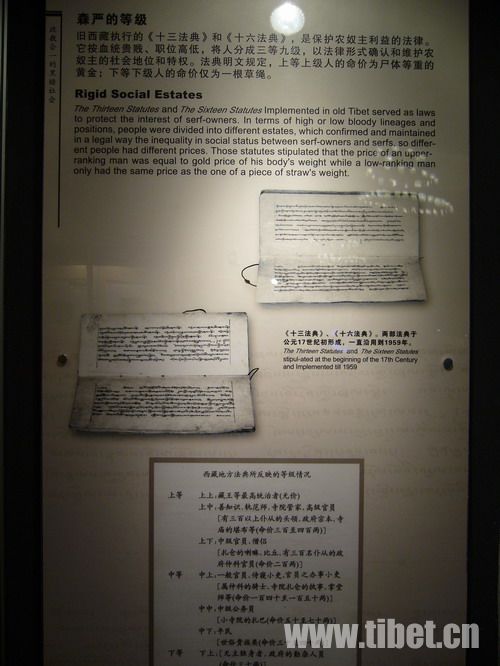 政教合一的黑暗社会
森严的等级
旧西藏执行的《十三法典》和《十六法典》，是保护农奴主利益的法律。
它按血统贵贱、职位高低，将人分成三等九级，以法律形式确认和维护农
奴主的社会地位和特权。法典明文规定，上等上级人的命价为尸体等重的
黄金；下等下级人的命价仅为一根草绳。
Rigid Social Estates
The Thirteen Statutes and The Sixteen Statutes Implemented in old Tibet served as laws
to protect the interest of serf-owners. In terms of high or low bloody lineages and
positions, people were divided into different estates, which confirmed and maintained
in a legal way the inequality in social status between serf-owners and serfs, so differ-
ent people had different prices. Those statutes stipulated that the price of an upper-
ranking man was equal to gold price of his body's weight while a low-ranking man
only had the same price as the one of a piece of straw's weight.
《十三法典》、《十六法典》。两部法典于
公元17世纪初形成，一直沿用到1959年。
The Thirteen Statutes and The Sixteen Statutes
stipul-ated at the beginning of the 17th Century
and Implemented till 1959
西藏地方法典所反映的等级情况
上等 上上:藏王等最高统治者(无价)
上中:善知识、轨范师、寺院管家、高级官员
[有三百以上仆从的头领、政府宗本、寺
庙的堪布等(命价三百至四百两)]
上下:中级官员、僧侣
[扎仓的喇嘛、比丘、有三百名仆从的政
府仲科官员(命价二百两)]
中等 中上:一般官员、侍寝小吏、官员之办事小吏
[属仲科的骑士、寺院扎仓的执事、掌堂
师等(命价一百四十至一百五十两)]
中中:中级公务员
[小寺院的扎巴(命价五十至七十两)]
中下:平民
[世俗贵族类(命价三
下等 下上:[无主独身者、政府的勤杂人员
www.tibet.cn